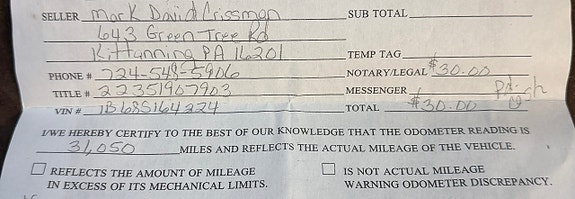 SELLER Mark David Crissman SUB TOTAL
643 Green Tree Rd
Kittanning PA 16201 TEMP TAG
PHONE # 724-548-5906 NOTARY/LEGAL $30.00
TITLE # 22351907903 MESSENGER Pd.
VIN # 1B68S164224 TOTAL $30.00
I/WE HEREBY CERTIFY TO THE BEST OF OUR KNOWLEDGE THAT THE ODOMETER READING IS
31,050 MILES AND REFLECTS THE ACTUAL MILEAGE OF THE VEHICLE.
REFLECTS THE AMOUNT OF MILEAGE IS NOT ACTUAL MILEAGE
IN EXCESS OF ITS MECHANICAL LIMITS. WARNING ODOMETER DISCREPANCY.